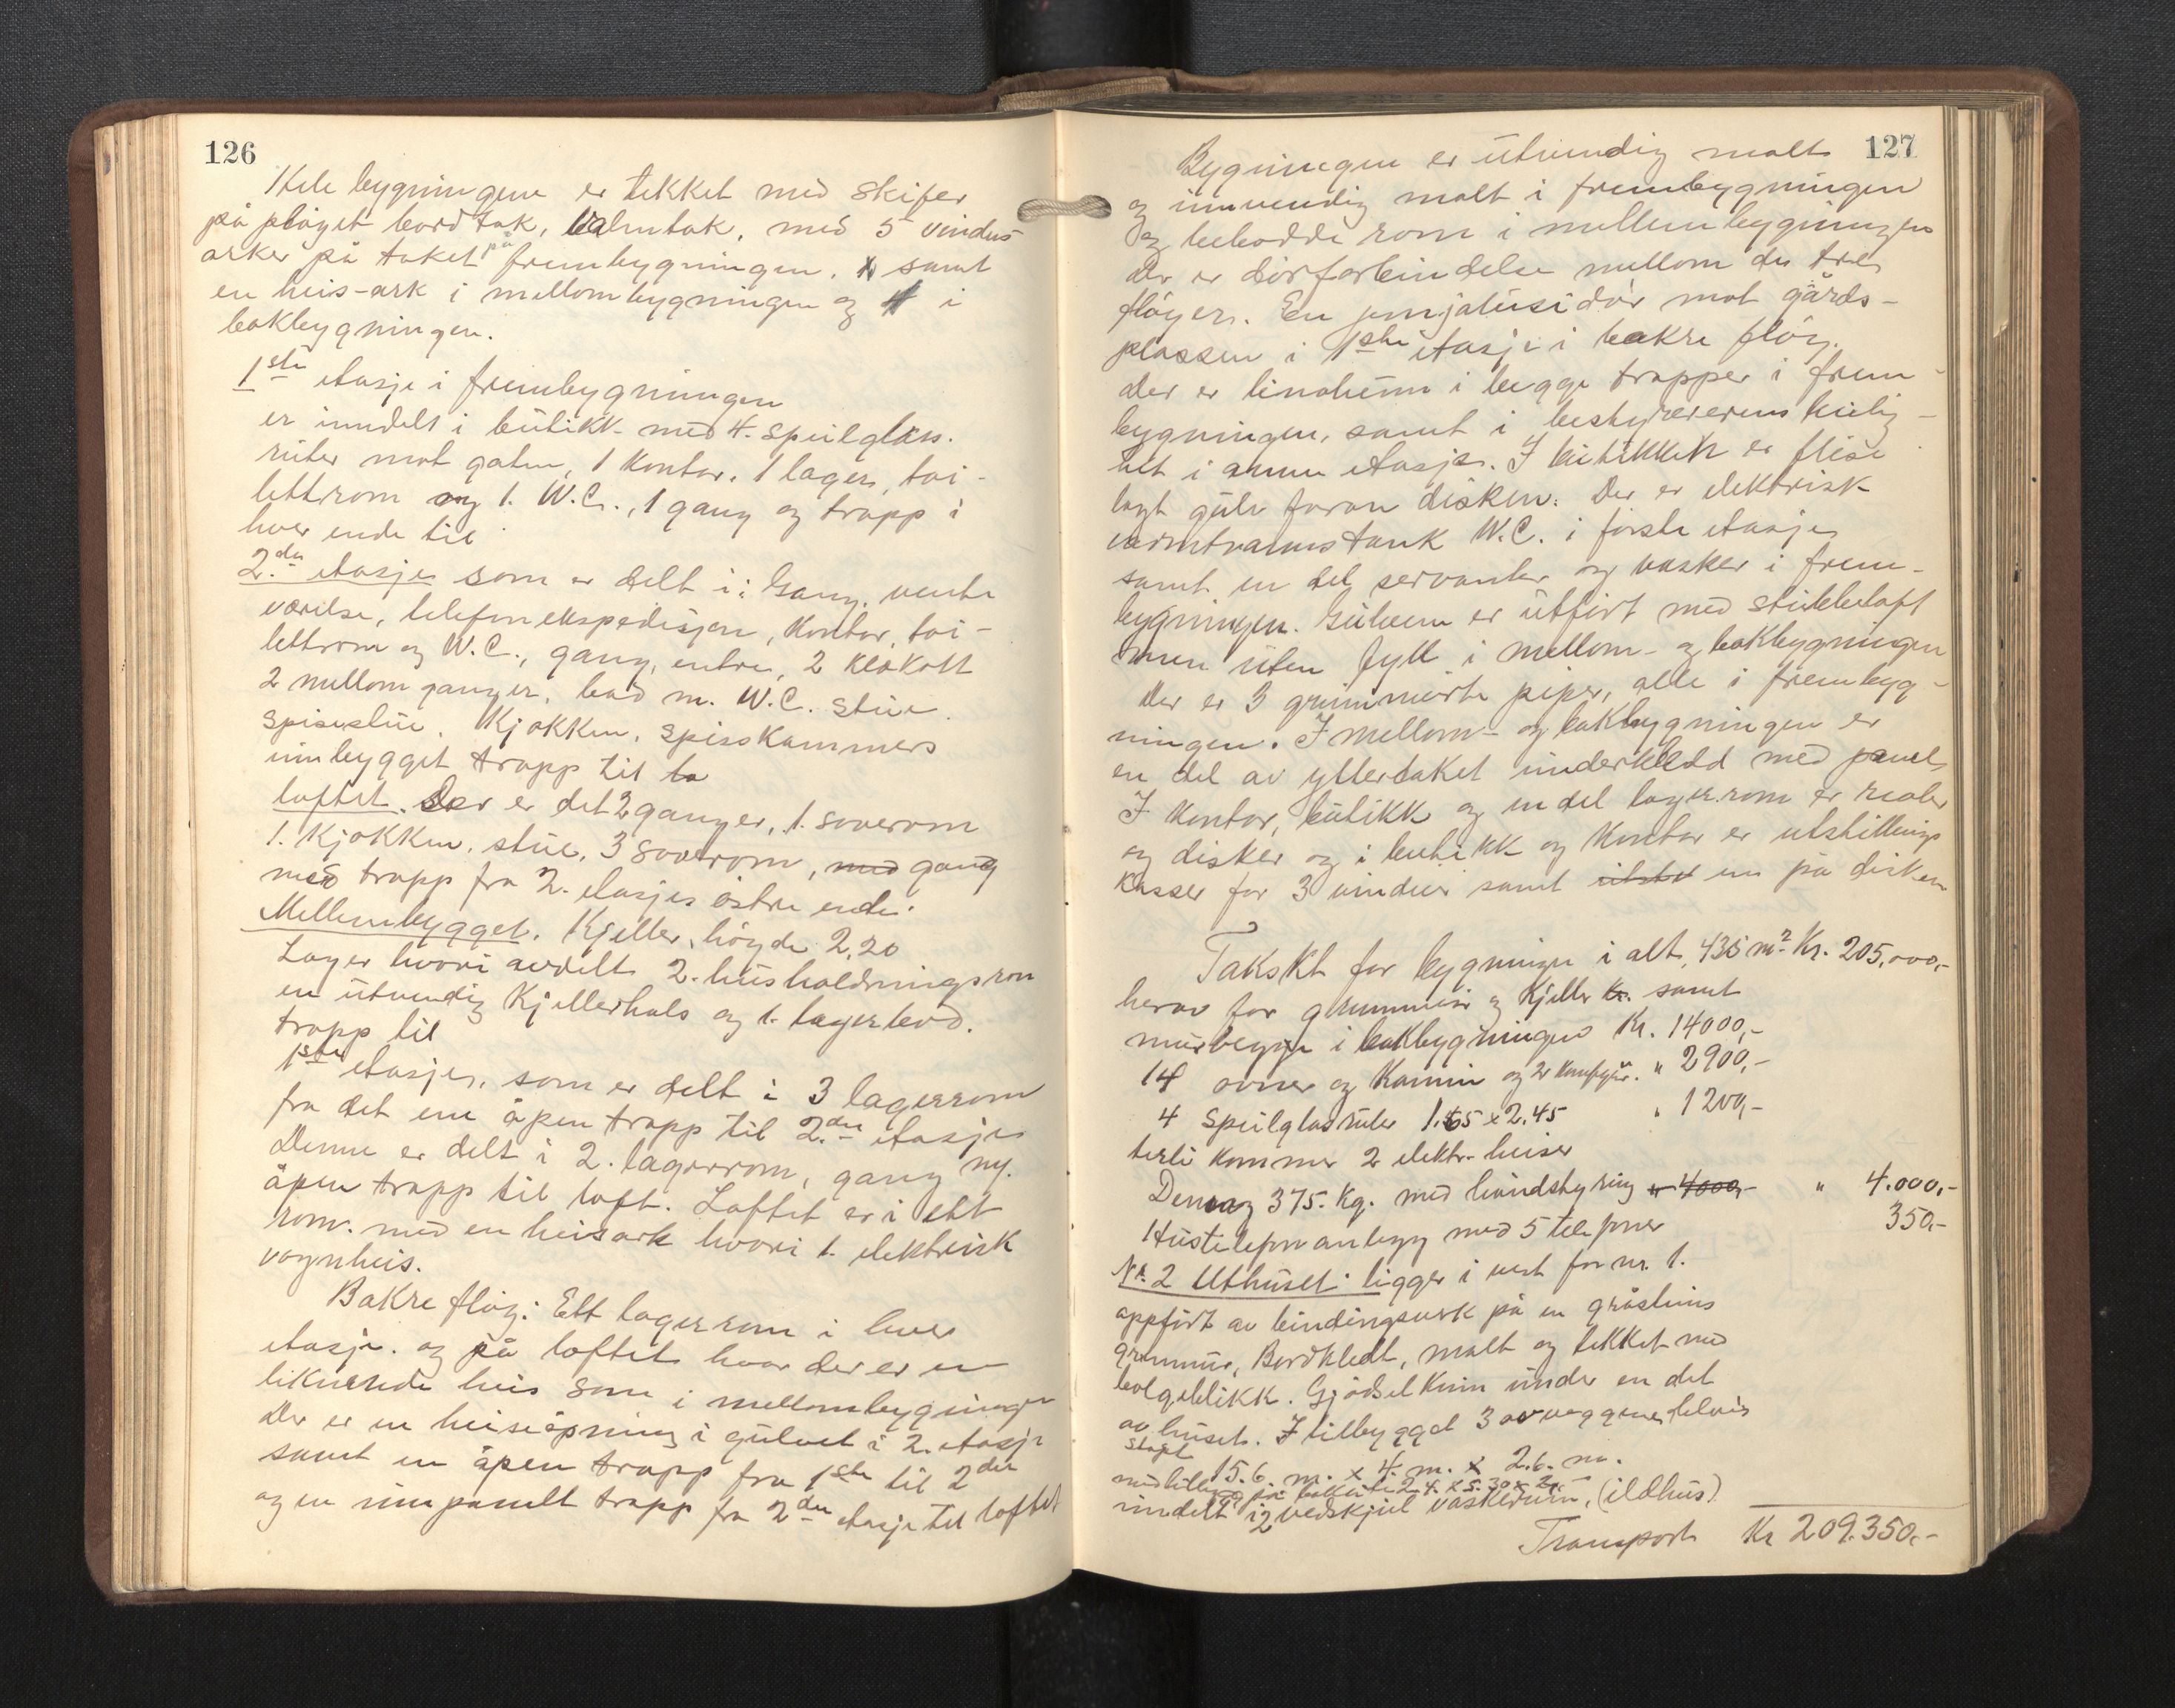 126
Hele bygningen er tekket med skifer
på pløyet bordtak, valmtak, med 5 vindus-
arker på taket på frembygningen, samt
en heis-ark i mellombygningen og 1 i
bakbygningen.
1ste etasje i frembygningen
er inndelt i butikk med 4 speilglass-
ruter mot gaten, 1 kontor, 1 lager, toi-
lettrom og 1. W.C., 1 gang og trapp i
hver ende til
2.den etasje som er delt i: Gang, vente
værelse, telefonekspedisjon, kontor, toi-
lettrom og W.C., gang, entre, 2 klåkott
2 mellomganger, bad m. W.C. stue
spisestue, kjøkken, spisskammers
innbygget trapp til
loftet. Der er det 2 ganger, 1. soverom
1. kjøkken, stue, 3 soverom, med gang
med trapp fra 2. etasjes østre ende.
Mellembygget. Kjeller, høyde 2,20
Lager hvori avdelt 2. husholdningsrom
en utvendig kjellerhals og 1. lagerbod.
trapp til
1ste etasje, som er delt i 3 lagerrom
fra det ene åpen trapp til 2.den etasje
Denne er delt i 2. lagerrom, gang
åpen trapp til loft. Loftet er i ett
rom. med en heisark hvori 1. elektrisk
vognheis.
Bakre fløy: Ett lagerrom i hver
etasje. og på loftet hvor der er en
liknende heis som i mellombygningen
Der er en heiseåpning i gulvet i 2. etasje
samt en åpen trapp fra 1ste til 2den
og en innpanelt trapp fra 2den etasje til loftet
127
Bygningen er utvendig malt
og innvendig malt i frembygningen
og bebodde rom i mellembygningen
Der er dørforbindelse mellom de tre
fløyer. En jernjalusidør mot gårds-
plassen i 1ste etasje i bakre fløy.
der er linoleum i begge trapper i frem-
bygningen, samt i bestyrerens leilig-
het i annen etasje. I butikken er flise
lagt gulv foran disken. Der er elektrisk
varmtvannstank W.C. i første etasje
samt en del servanter og vasker i frem-
bygningen. Gulvene er utført med stubbeloft
men uten fyll i mellom- og bakbygningen
Der er 3 grunnmurte piper, alle i frembyg-
ningen. I mellom- og bakbygningen er
en del av yttertaket underkledd med panel,
I kontor, butikk og en del lagerrom er reoler
og disker og i butikk og kontor er utstillings
kasser for 3 vinduer samt en på disken
Takskt for bygningen i alt, 435 m² Kr. 205,000,-
herav for grunnmur og kjeller kr. samt
murvegge i bakbygningen Kr. 14000,-
14 ovner og kamin og 2 komfyr. " 2900,-
4 speilglasruter 1.65 x 2.45 " 1200,-
kommer 2 elektr. heiser
375. Kg. med håndstyring " 4000,- " 4.000,-
Hustelefonanlegg med 5 telefoner 350,-
Nr. 2 Uthuset: ligger i vest for nr. 1.
oppført av bindingsverk på en gråstens
grunnmur, Bordkledt, malt og tekket med
bølgeblikk. Gjødselkum under en del
av huset. I tilbygget 3 av veggene delvis
støpt
15.6. m. x 4. m. x 2.6. m.
med tilbygg på baksiden 2.4. x 5.30 x 2.-
inndelt i 2 vedskjul vaskerum, (ildhus)
Transport Kr 209.350,-